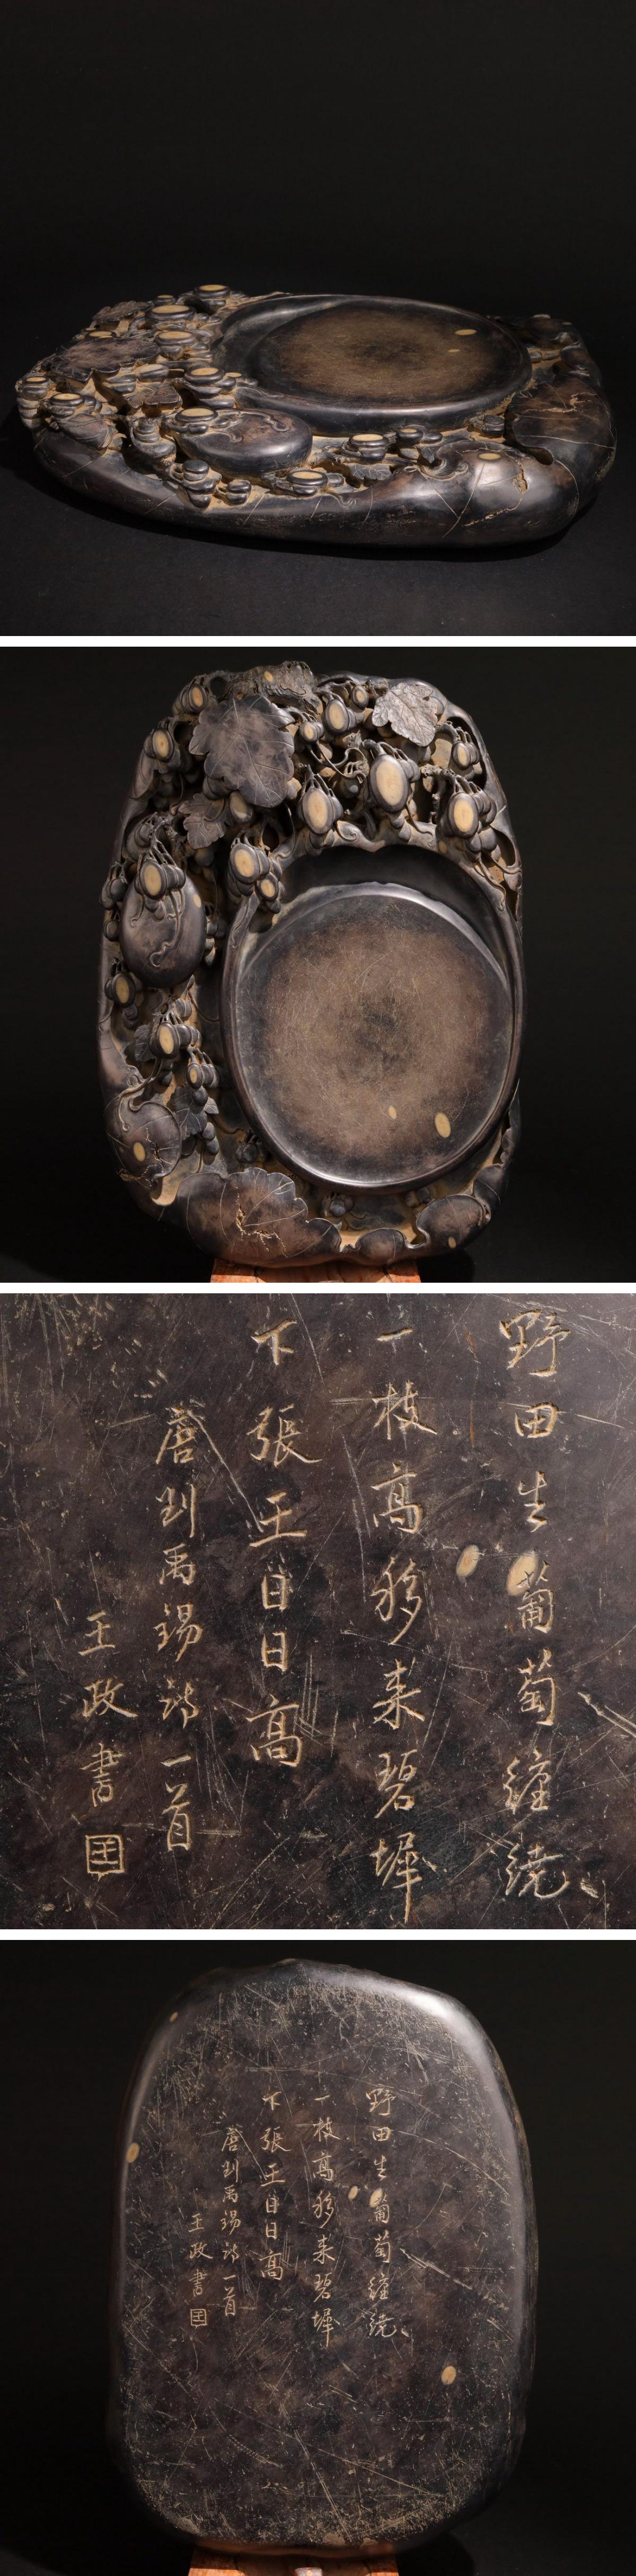 野田生葡萄纏繞
一枝高移来碧墀
下張王自日高
唐刘禹錫詩一首
王政書
王
野田生葡萄纏繞
一枝高移来碧墀
下張王自日高
唐刘禹錫詩一首
王政書
王